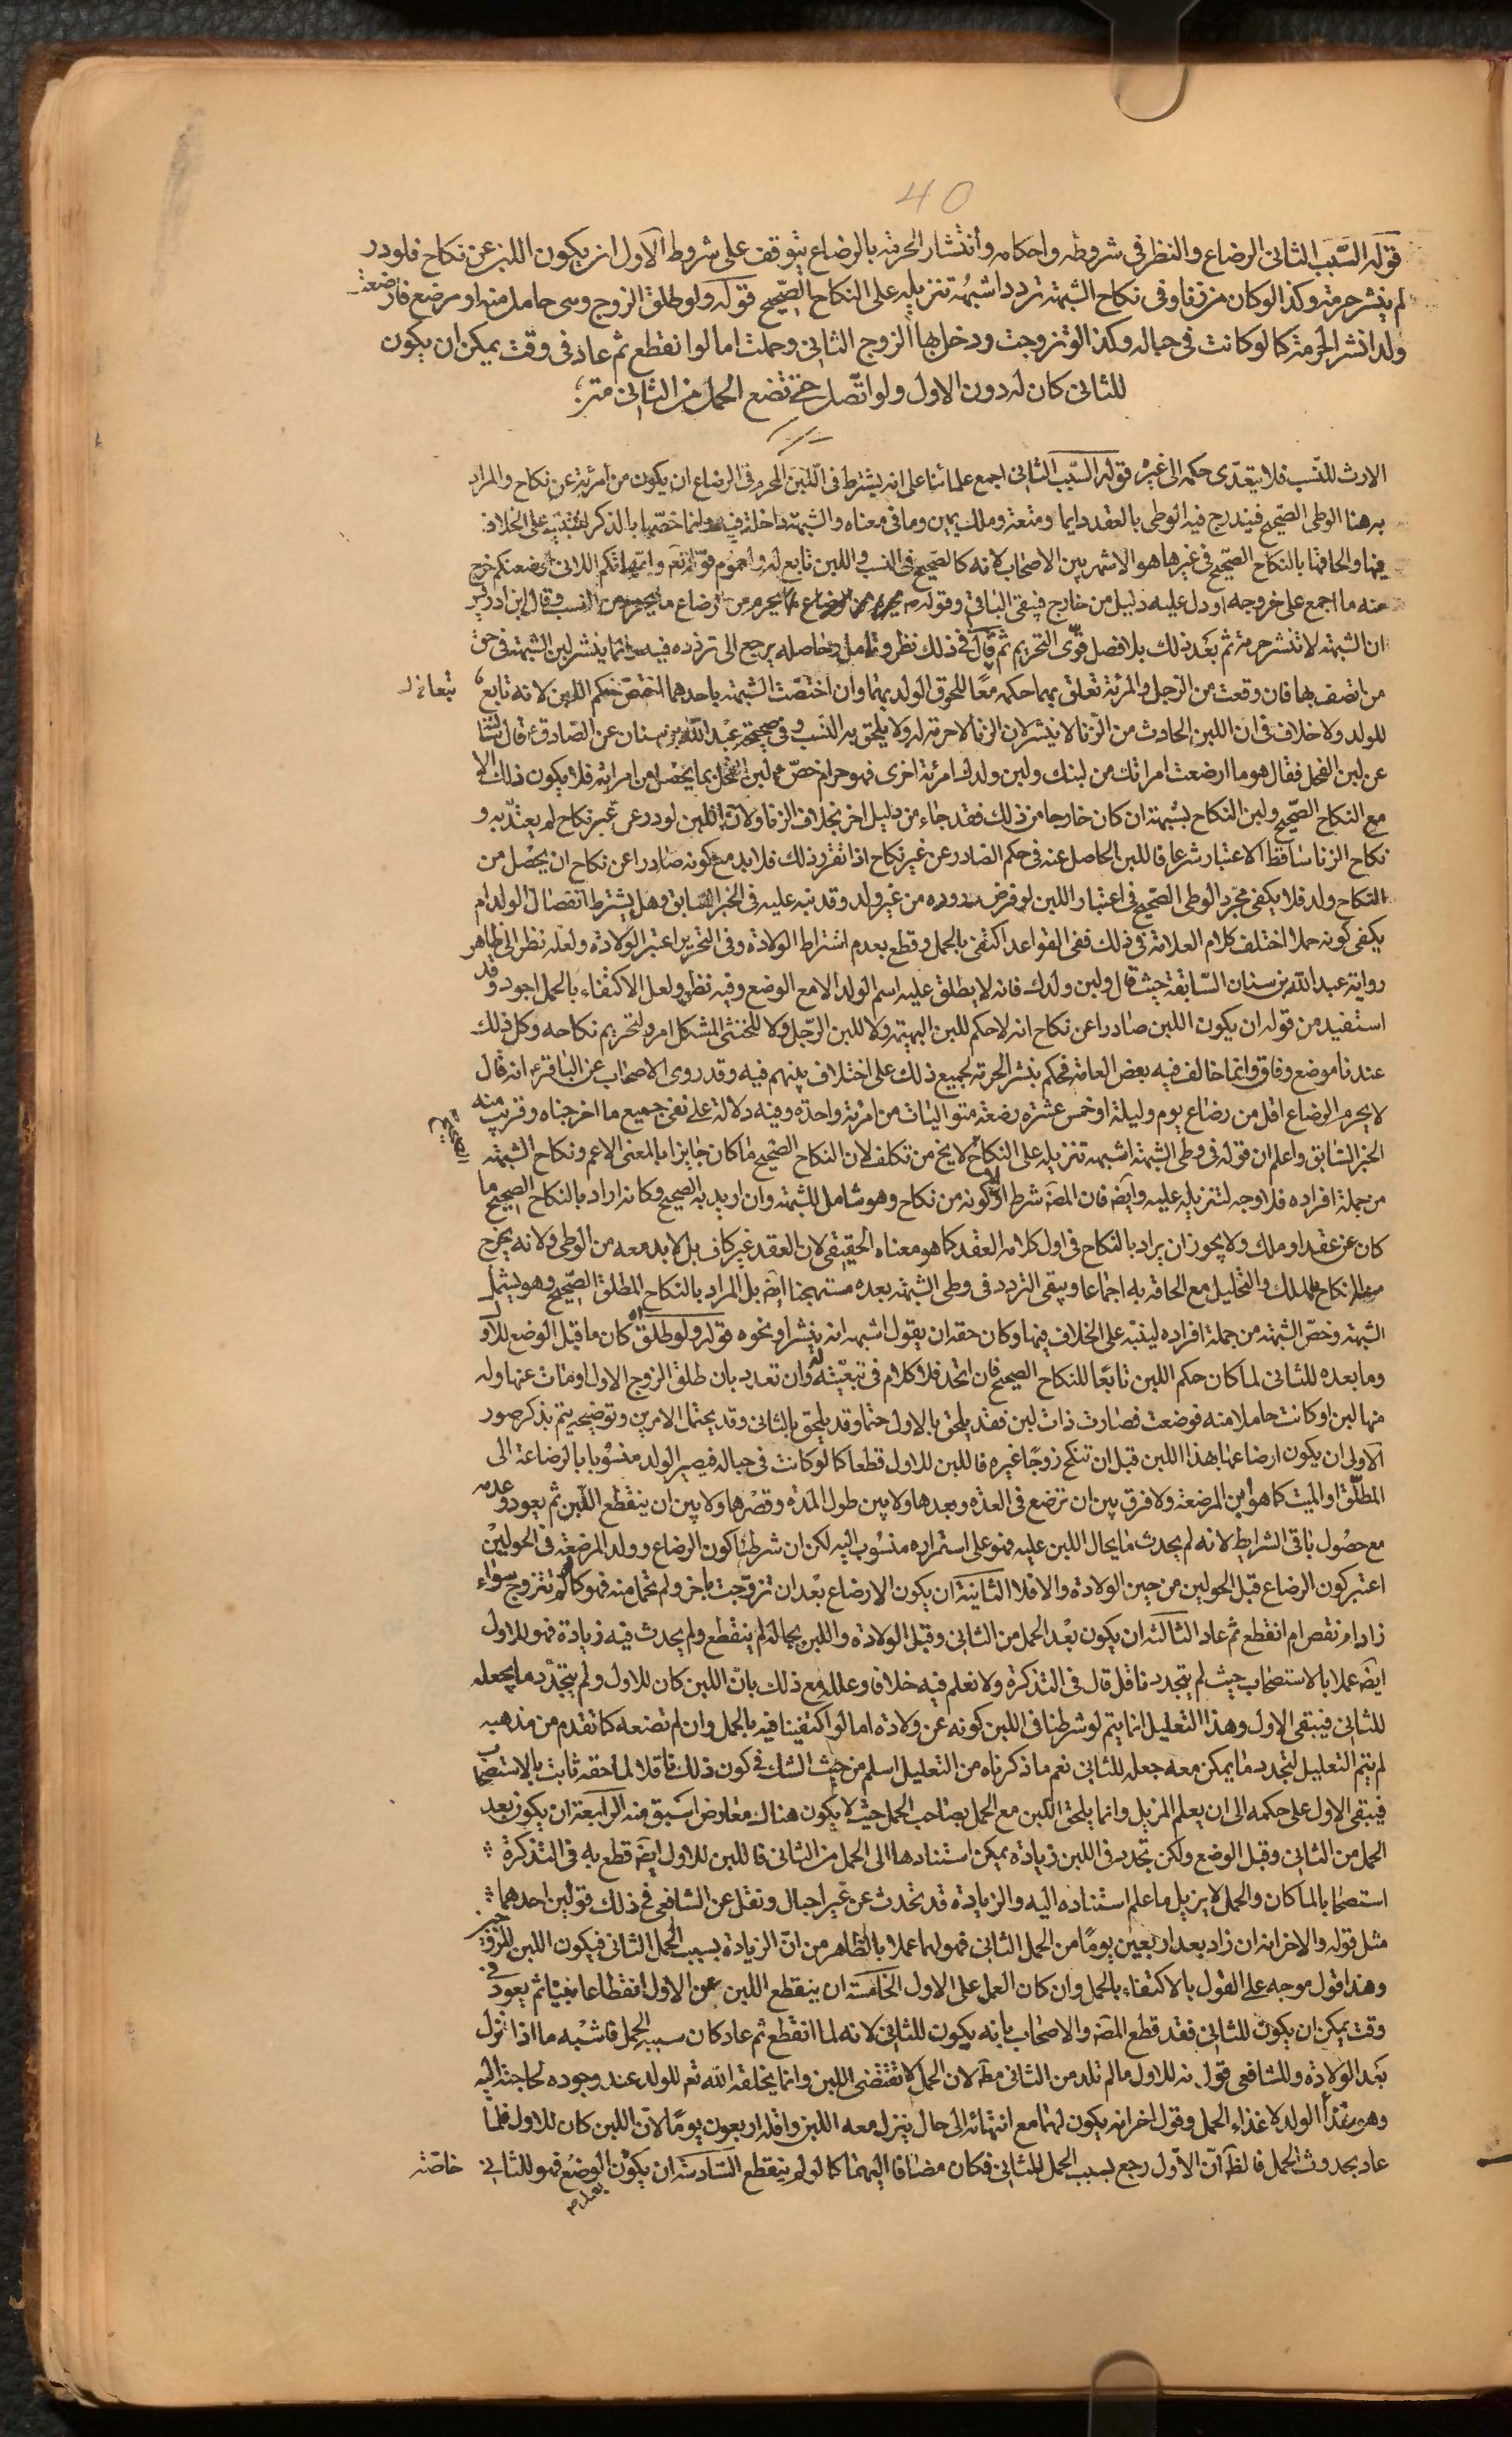 40
قوله السَّبَب الثانى الرضاع والنظر فى شروطه واحكامه وأنتشار الحرمة بالرضاع يتوقف على شروط الاول ان يكون اللبن عن نكاح فلو در
لم ينشر حرمة وكذا لو كان من زنا وفى نكاح الشبهة تردد اشبهه تنزيله على النكاح الصّحيح قوله ولو طلق الزوج وهى حامل منه او مرضع فارضعت
ولدا نشر الحرمة كما لو كانت فى حباله وكذا لو تزوجت ودخل بها الزوج الثانى وحملت اما لو انقطع ثم عاد فى وقت يمكن ان يكون
للثانى كان له دون الاول ولو اتّصل حتى تضع الحمل من الثانى
الارث للنّسب فلا يتعدّى حكمه الى غيره قوله السّبب الثانى اجمع علمائنا على انه يشترط فى اللّبن المحرم فى الرضاع ان يكون من امرئة عن نكاح والمراد
به هنا الوطى الصّحيح فيندرج فيه الوطى بالعقد دايما ومتعة وملك يمين وما فى معناه والشبهة داخلة فيه وانما خصّها بالذكر للتنبيه على الخلاف
فيها والحاقها بالنكاح الصّحيح فى غيرها هو الاشهر بين الاصحاب لانه كالصّحيح فى النسب واللبن تابع له ولعموم قوله تعم وامّهاتكم اللاتى ارضعنكم خرج
منه ما اجمع على خروجه او دل عليه دليل من خارج فيبقى الباقى وقوله يحرم من الرضاع ما يحرم من النسب وقال ابن ادريس
ان الشبهة لا تنشر حرمة ثم بعد ذلك بلا فصل قوّى التحريم ثم قال فى ذلك نظر وتامل وحاصله يرجع الى تردده فيه وانما ينشر لبن الشبهة فى حق
من اتصف بها فان وقعت من الرّجل والمرئة تعلق بهما حكمه معًا للحوق الولد بهما وان اختصّت الشبهة باحدهما اختصّ حكم اللبن لانه تابع
للولد ولا خلاف فى ان اللبن الحادث من الزّنا لا ينشر لان الزنا لا حرمة له ولا يلحق به النّسب وفى صحيحة عبد اللّه بن سنان عن الصّادقؑ قال سئلته
عن لبن الفحل فقال هو ما ارضعت امراتك من لبنك ولبن ولدك امرئة اخرى فهو حرام خصّ لبن الفحل بما يحصل من امرائته فلا يكون ذلك الا
مع النكاح الصّحيح ولبن النكاح بشبهة ان كان خارجا من ذلك فقد جاء من دليل اخر بخلاف الزنا ولانّ اللبن لو در عن غير نكاح لم يعتدّ به و
نكاح الزنا ساقط الاعتبار شرعا فاللبن الحاصل عنه فى حكم الصادر عن غير نكاح اذا تقرر ذلك فلا بد مع كونه صادرا عن نكاح ان يحصل من
النكاح ولد فلا يكفى مجرّد الوطى الصّحيح فى اعتبار اللبن لو فرض دروره من غير ولد وقد نبه عليه فى الخبر السّابق وهل يشترط انفصال الولد ام
يكفى كونه حملا اختلف كلام العلامة فى ذلك ففى القواعد اكتفى بالحمل وقطع بعدم اشتراط الولادة وفى التحرير اعتبر الولادة ولعله نظر الى ظاهر
رواية عبد اللّه بن سنان السّابقة حيث قال ولبن ولدك فانه لا يطلق عليه اسم الولد الا مع الوضع وفيه نظر ولعل الاكتفاء بالحمل اجود وقد
استفيد من قوله ان يكون اللبن صادرا عن نكاح انه لا حكم للبن البهيمة ولا للبن الرّجل ولا للخنثى المشكل امره لتحريم نكاحه وكل ذلك
عندنا موضع وفاق وانما خالف فيه بعض العامة فحكم بنشر الحرمة لجميع ذلك على اختلاف بينهم فيه وقد روى الاصحاب عن الباقرؑ انه قال
لا يحرم الرضاع اقل من رضاع يوم وليلة او خمس عشرة رضعة متواليات من امرئة واحدة وفيه دلالة على نفى جميع ما اخرجناه وقريب منه
الخبر السّابق واعلم ان قوله فى وطى الشبهة اشبهه تنزيله على النكاح الصحيح لا يخ من تكلف لان النكاح الصّحيح ما كان جايزا بالمعنى الاعم ونكاح الشبهة
من جملة افراده فلا وجه لتنزيله عليه وايضه فان المصه شرط اولا كونه من نكاح وهو شامل للشبهة وان اريد به الصحيح وكانه اراد بالنكاح الصحيح ما
كان عن عقد او ملك ولا يجوز ان يراد بالنكاح فى اول كلامه العقد كما هو معناه الحقيقى لان العقد غير كاف بل لا بد معه من الوطى ولانه يخرج
من النكاح الملك والتحليل مع الحاقه به اجماعا ويبقى التردد فى وطى الشبهة بعده مستهجنا ايضه بل المراد بالنكاح المطلق الصّحيح وهو يشمل
الشبهة وخصّ الشبهة من جملة افراده لينبه على الخلاف فيها وكان حقه ان يقول اشبهه انه ينشر او نحوه قوله ولو طلق اه كان ما قبل الوضع للاول
وما بعده للثانى لما كان حكم اللبن تابعًا للنكاح الصحيح فان اتحد فلا كلام فى تبعيّته له وان تعدد بان طلق الزوج الاول او مات عنها وله
منها لبن او كانت حاملا منه فوضعت فصارت ذات لبن فقد يلحق بالاول حتما وقد يلحق بالثانى وقد يحتمل الامرين وتوضيحه يتم بذكر صور
الاولى ان يكون ارضاعها بهذا اللبن قبل ان تنكح زوجًا غيره فاللبن للاول قطعا كما لو كانت فى حباله فيصير الولد منسوبا بالرضاعة الى
المطلّق او الميت كما هو ابن المرضعة ولا فرق بين ان ترضع فى العدّة وبعدها ولا بين طول المدّة وقصرها ولا بين ان ينقطع اللّبن ثم يعود وعدمه
مع حصول باقى الشرايط لانه لم يحدث ما يحال اللبن عليه فهو على استمراره منسوب اليه لكن ان شرطنا كون الرضاع وولد المرضعة فى الحولين
اعتبر كون الرضاع قبل الحولين من حين الولادة والا فلا الثانية ان يكون الارضاع بعد ان تزوّجت باخر ولم تحمل منه فهو كما لو لم تتزوج سواء
زاد ام نقص ام انقطع ثم عاد الثالثة ان يكون بعد الحمل من الثانى وقبل الولادة واللبن بحاله لم ينقطع ولم يحدث فيه زيادة فهو للاول
ايضه عملا بالاستصحاب حيث لم يتجدد ناقل قال فى التذكرة ولا نعلم فيه خلافا وعلله مع ذلك بان اللبن كان للاول ولم يتجدّد ما يجعله
للثانى فيبقى للاول وهذا التعليل انما يتم لو شرطنا فى اللبن كونه عن ولادة اما لو اكتفينا فيه بالحمل وان لم تضعه كما تقدم من مذهبه
لم يتم التعليل لتجدد ما يمكن معه جعله للثانى نعم ما ذكرناه من التعليل اسلم من حيث الشك فى كون ذلك ناقلا لما حقه ثابت بالاستصحاب
فيبقى الاول على حكمه الى ان يعلم المزيل وانما يلحق اللبن مع الحمل بصاحب الحمل حيث لا يكون هناك معارض اسبق منه الرابعة ان يكون بعد
الحمل من الثانى وقبل الوضع ولكن تجدد فى اللبن زيادة يمكن استنادها الى الحمل من الثانى فاللبن للاول ايضه قطع به فى التذكرة
استصحابا لما كان والحمل لا يزيل ما علم استناده اليه والزيادة قد تحدث عن غير احبال ونقل عن الشافعى فى ذلك قولين احدهما
مثل قوله والاخر انه ان زاد بعد اربعين يومًا من الحمل الثانى فهو لهما عملا بالظاهر من انّ الزيادة بسبب الحمل الثانى فيكون اللبن للزوجين
وهذا قول موجه على القول بالاكتفاء بالحمل وان كان العمل على الاول الخامسة ان ينقطع اللبن عن الاول انقطاعا بيّنا ثم يعود فى
وقت يمكن ان يكون للثانى فقد قطع المصه والاصحاب بانه يكون للثانى لانه لما انقطع ثم عاد كان سببه الحمل فاشبه ما اذا نزل
بعد الولادة وللشافعى قول انه للاول ما لم تلد من الثانى مطه لان الحمل لا تقتضى اللبن وانما يخلقه اللّه تعم للولد عند وجوده لحاجته اليه
وهو غذأ الولد لا غذاء الحمل وقول اخر انه يكون لهما مع انتهائه الى حال ينزل معه اللبن واقله اربعون يومًا لانّ اللبن كان للاول فلما
عاد بحدوث الحمل فالظه انّ الاوّل رجع بسبب الحمل للثانى فكان مضافا اليهما كما لو لم ينقطع السّادسة ان يكون بعد الوضع فهو للثانى خاصّة